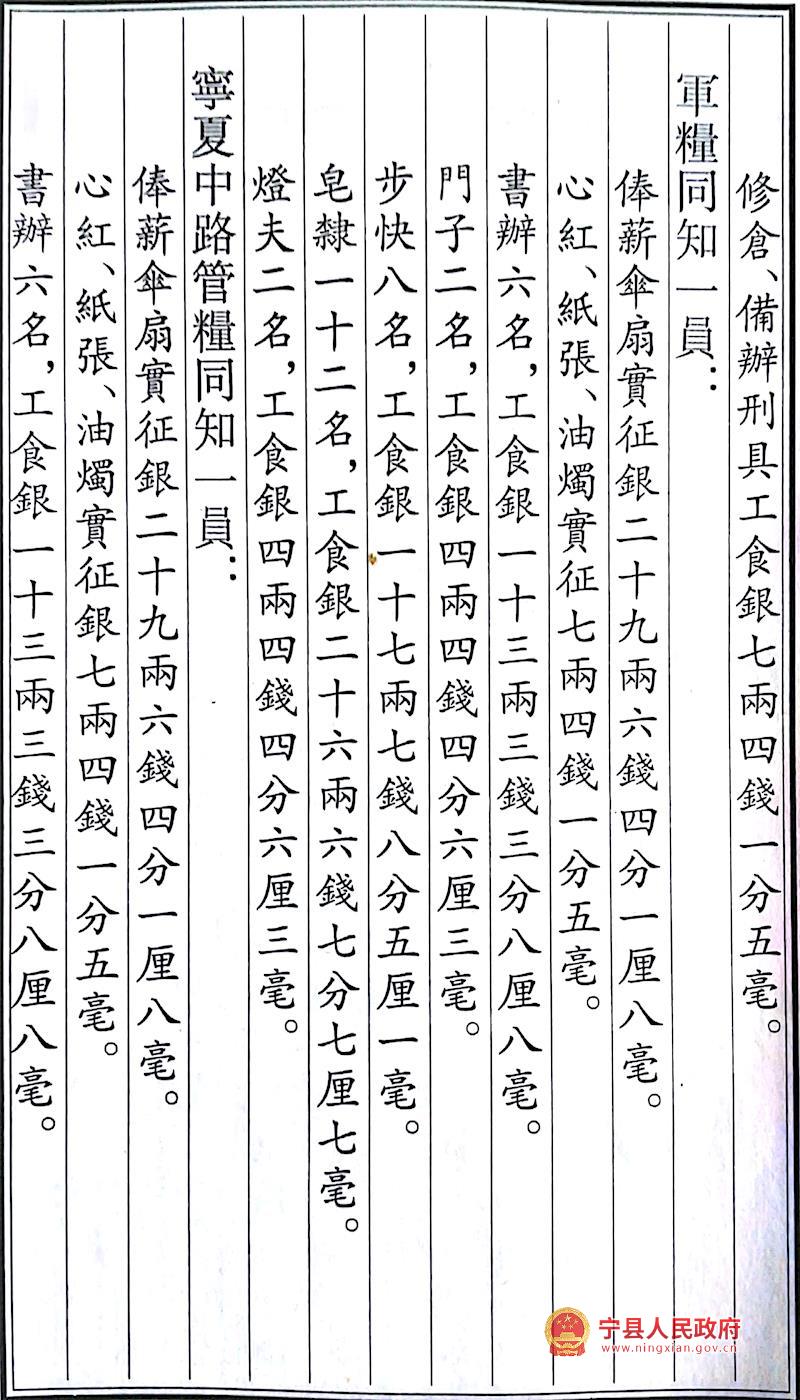 修倉、備辦刑具工食銀七兩四錢一分五毫。
軍糧同知一員：
俸薪傘扇實征銀二十九兩六錢四分一厘八毫。
心紅、紙張、油燭實征七兩四錢一分五毫。
書辦六名，工食銀一十三兩三錢三分八厘八毫。
門子二名，工食銀四兩四錢四分六厘三毫。
步快八名，工食銀一十七兩七錢八分五厘一毫。
皂隸一十二名，工食銀二十六兩六錢七分七厘七毫。
燈夫二名，工食銀四兩四錢四分六厘三毫。
寧夏中路管糧同知一員：
俸薪傘扇實征銀二十九兩六錢四分一厘八毫。
心紅、紙張、油燭實征銀七兩四錢一分五毫。
書辦六名，工食銀一十三兩三錢三分八厘八毫。
宁县人民政府
www.ningxian.gov.cn